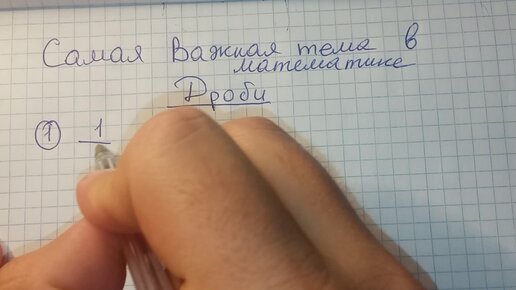 Самая Важная тема в
математике
Дроби
① 1